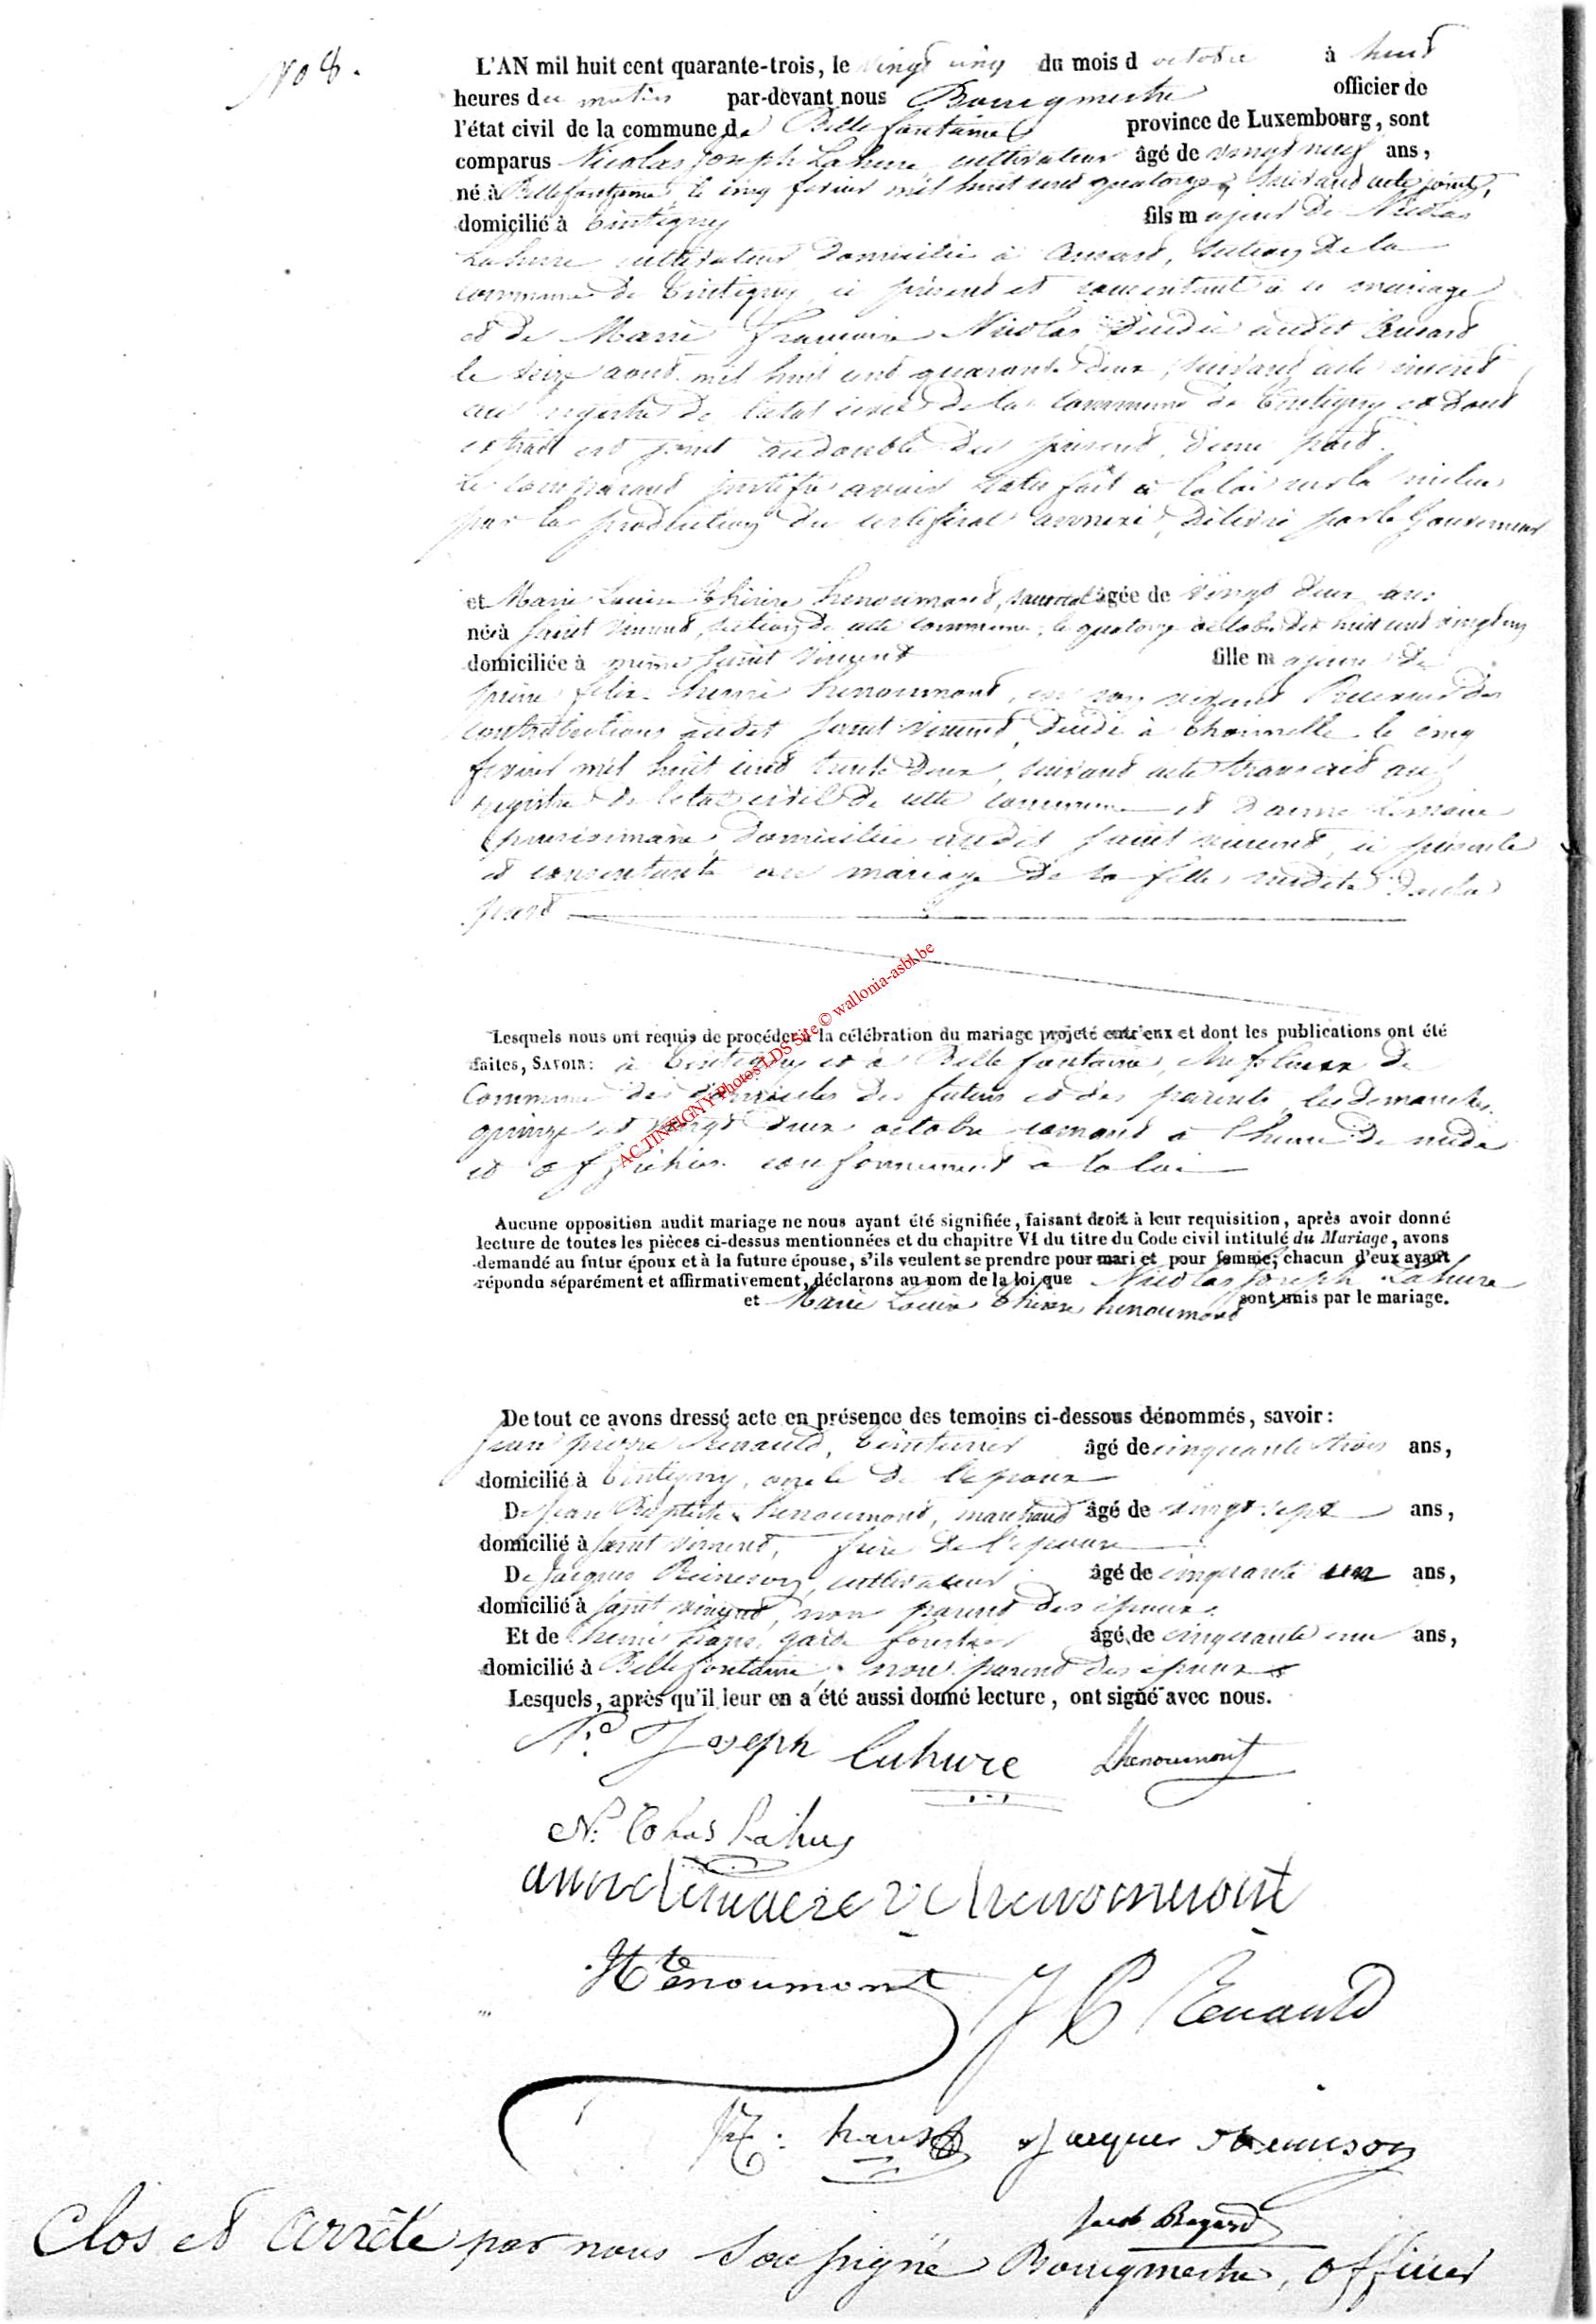 No 8.
L'AN mil huit cent quarante-trois, le vingt cinq du mois d octobre à huit
heures du matin par-devant nous Bourgmestre officier de
l'état civil de la commune de Bellefontaine province de Luxembourg, sont
comparus Nicolas Joseph Lahure cultivateur âgé de vingt neuf ans,
né à Bellefontaine, le cinq fevrier mil huit cent quatorze, suivant acte joint,
domicilié à Tintigny fils majeur de Nicolas
Lahure cultivateur domicilié à Ansart, section de la
commune de Tintigny ici présent et consentant à ce mariage
et de Marie Françoise Nicolas décédée audit Ansart
le seize aout mil huit cent quarante deux, suivant acte inscrit
au registre de l'état civil de la commune de Tintigny et dont
extrait est joint au double du présent, d'une part.
Le comparant justifie avoir satisfait à la loi sur la milice
par la production du certificat annexé, délivré par le Gouverneur
et Marie Louise Thérèse henoumont, âgée de vingt deux ans
née à Saint Vincent, section de cette commune, le quatorze octobre dix huit cent vingt un
domiciliée à même Saint Vincent fille majeure de
feu félix henri henoumont, en son vivant Receveur des
contributions audit Saint Vincent, décédé à thonnelle le cinq
fevrier mil huit cent trente deux, suivant acte transcrit au
registre de l'état civil de cette commune et d'anne Lemaire
domiciliée audit Saint Vincent, ici présente
et consentante au mariage de sa fille susdite d'autre
part
Lesquels nous ont requis de procéder à la célébration du mariage projeté entr'eux et dont les publications ont été
faites, SAVOIR: à Tintigny et à Bellefontaine, chefs lieux de
Commune des domiciles des futurs et des parents, les dimanches
quinze et vingt deux octobre courant à l'heure de midi
et affichées conformément à la loi
Aucune opposition audit mariage ne nous ayant été signifiée, faisant droit à leur requisition, après avoir donné
lecture de toutes les pièces ci-dessus mentionnées et du chapitre VI du titre du Code civil intitulé du Mariage, avons
demandé au futur époux et à la future épouse, s'ils veulent se prendre pour mari et pour femme; chacun d'eux ayant
répondu séparément et affirmativement, déclarons au nom de la loi que Nicolas Joseph Lahure
et Marie Louise Thérèse henoumont sont unis par le mariage.
De tout ce avons dressé acte en présence des temoins ci-dessous dénommés, savoir:
Jean pierre Renauld, teinturier âgé de cinquante trois ans,
domicilié à Tintigny, oncle de l'époux
De Jean Baptiste henoumont, marchand âgé de vingt sept ans,
domicilié à Saint Vincent, frère de l'épouse
De Jacques cultivateur âgé de cinquante un ans,
domicilié à Saint Vincent, non parent des époux.
Et de henri garde forestier âgé de cinquante un ans,
domicilié à Bellefontaine, non parent des époux
Lesquels, après qu'il leur en a été aussi donné lecture, ont signé avec nous.
Ns Joseph Lahure Lhenoumont
N. Colas Lahur
anne lemaere ve henoumont
Henoumont JP Renauld
H. hans Jacques
Jacob Bogard
Clos et Arrêté par nous soussigné Bourgmestre, officier
AC TINTIGNY Photos LDS Site © wallonia-asbl.be